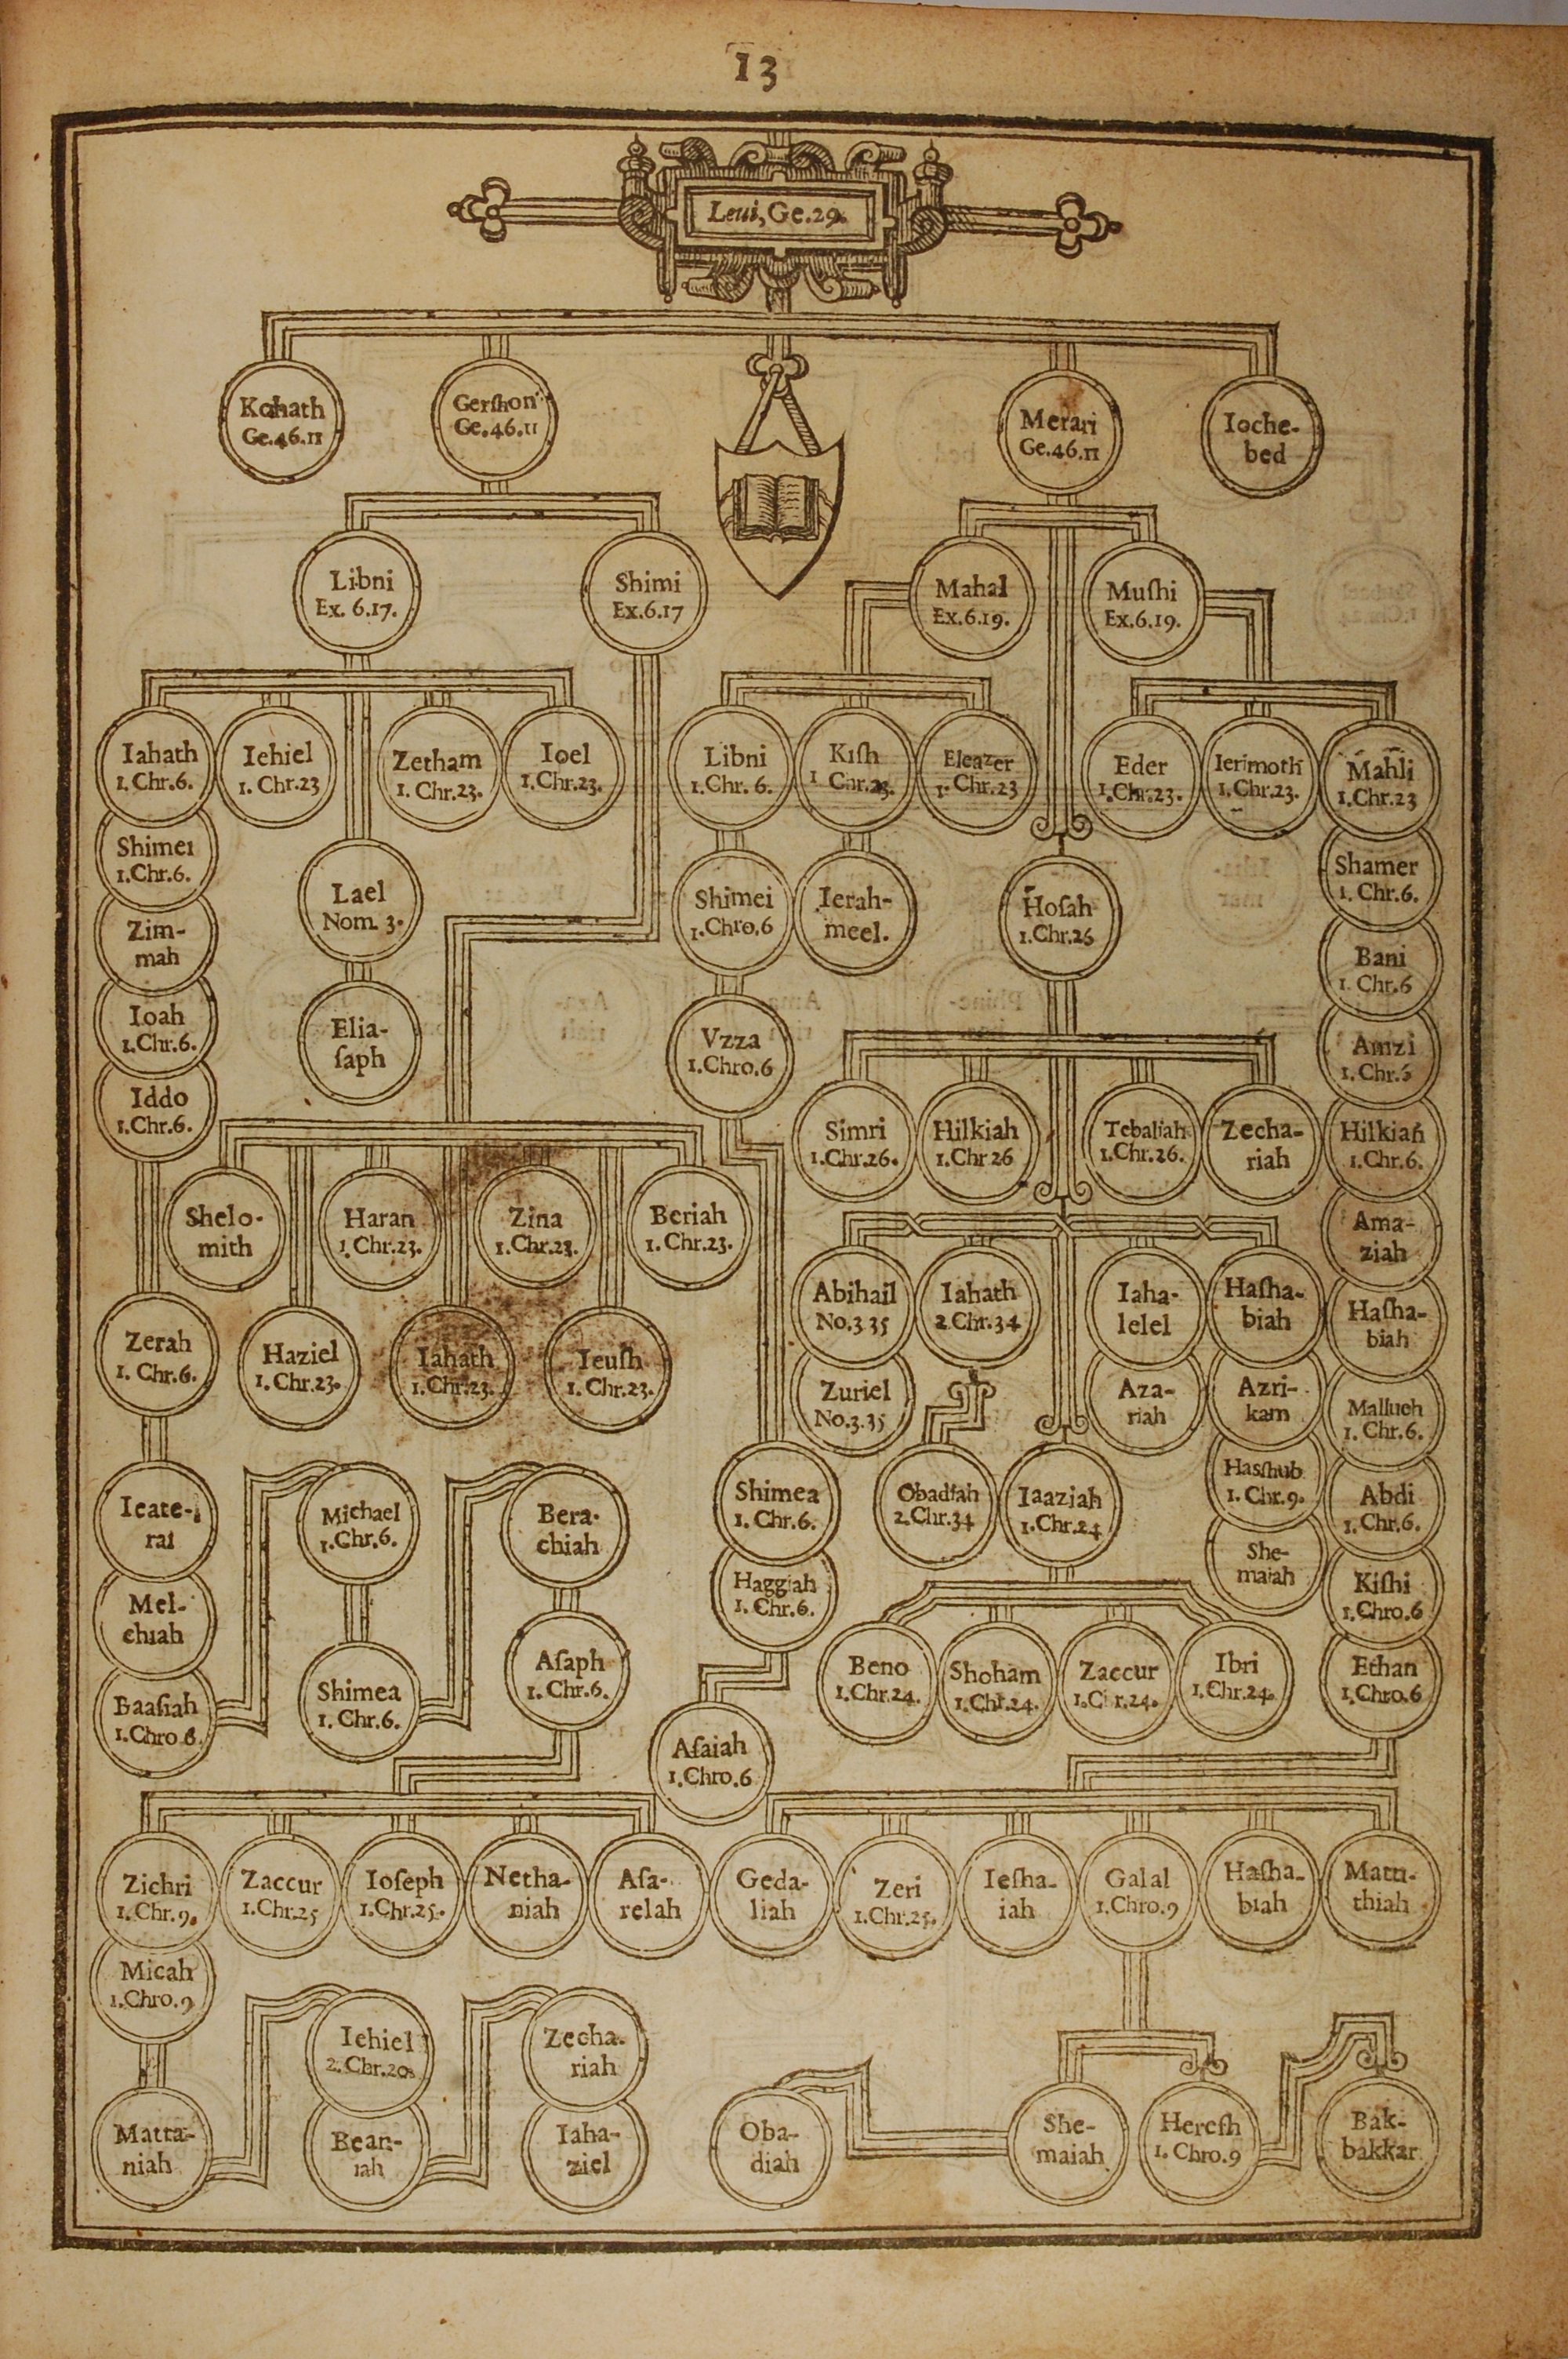 13
Leui, Ge.29.
Kohath
Ge.46.11
Gerſhon
Ge.46.11
Merari
Ge.46.11
Ioche-
bed
Libni
Ex. 6.17.
Shimi
Ex.6.17
Mahal
Ex.6.19.
Muſhi
Ex.6.19.
Iahath
1.Chr.6.
Iehiel
1. Chr.23
Zetham
1. Chr.23.
Ioel
1.Chr.23.
Libni
1.Chr. 6.
Kiſh
1 Chr.23.
Eleazer
1. Chr.23
Eder
1.Chr.23.
Ierimoth
1.Chr.23.
Mahli
1.Chr.23
Shimei
1.Chr.6.
Lael
Nom. 3.
Shimei
1.Chro.6
Ierah-
meel.
Hoſah
1.Chr.26
Shamer
1. Chr.6.
Zim-
mah
Bani
1. Chr.6
Ioah
1.Chr.6.
Elia-
ſaph
Vzza
1.Chro.6
Amzi
1.Chr.6
Iddo
1.Chr.6.
Simri
1.Chr.26.
Hilkiah
1.Chr 26
Tebaliah
1.Chr.26.
Zecha-
riah
Hilkiah
1.Chr.6.
Shelo-
mith
Haran
1.Chr.23.
Zina
1.Chr.23.
Beriah
1. Chr.23.
Ama-
ziah
Abihail
No.3 35
Iahath
2.Chr.34
Iaha-
lelel
Haſha-
biah
Haſha-
biah
Zerah
1. Chr.6.
Haziel
1.Chr.23.
Iahath
1.Chr.23.
Ieuſh
1. Chr.23.
Zuriel
No.3.35
Aza-
riah
Azri-
kam
Malluch
1. Chr.6.
Icate-
rai
Michael
1.Chr.6.
Bera-
chiah
Shimea
1. Chr.6.
Obadiah
2.Chr.34
Iaaziah
1.Chr.24
Hasſhub
1. Chr.9.
Abdi
1.Chr.6.
Mel-
chiah
Haggiah
1. Chr.6.
She-
maiah
Kiſhi
1.Chro.6
Baaſiah
1.Chro 6.
Shimea
1. Chr.6.
Aſaph
1.Chr.6.
Beno
1.Chr.24.
Shoham
1.Chr.24.
Zaccur
1.Chr.24.
Ibri
1.Chr.24.
Ethan
1.Chro.6
Aſaiah
1.Chro.6
Zichri
1.Chr.9.
Zaccur
1.Chr.25
Ioſeph
1.Chr.25.
Netha-
niah
Aſa-
relah
Geda-
liah
Zeri
1.Chr.25.
Ieſha-
iah
Galal
1.Chro.9
Haſha-
biah
Matti-
thiah
Micah
1.Chro.9
Iehiel
2.Chr.20.
Zecha-
riah
Matta-
niah
Bean-
iah
Iaha-
ziel
Oba-
diah
She-
maiah
Hereſh
1. Chro.9
Bak-
bakkar